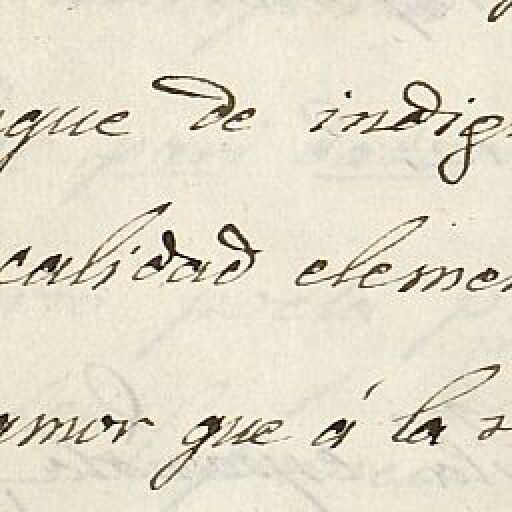 que de indig
calidad elemen
amor que á la